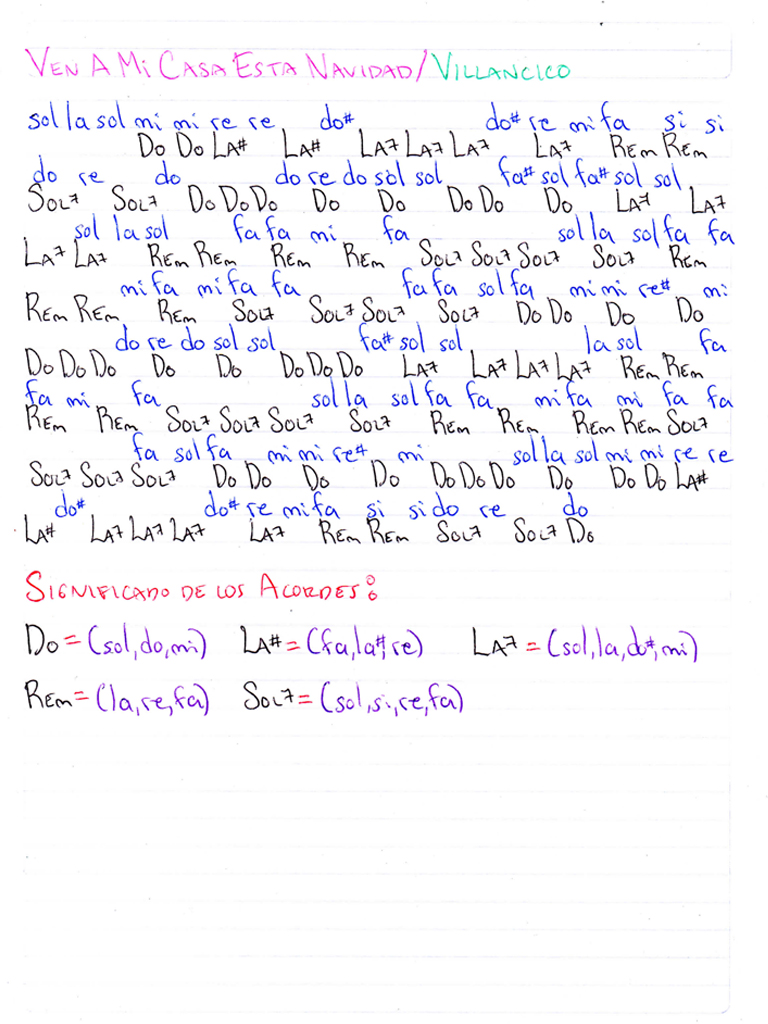 VEN A MI CASA ESTA NAVIDAD/VILLANCICO
sol la sol mi mi re re do# do# re mi fa si si
DO DO LA# LA# LA7 LA7 LA7 LA7 REm REm
do re do do re do sol sol fa# sol fa# sol sol
SOL7 SOL7 DO DO DO DO DO DO DO DO LA7 LA7
sol la sol fa fa mi fa sol la sol fa fa
LA7 LA7 REm REm REm REm SOL7 SOL7 SOL7 SOL7 REm
mi fa mi fa fa fa fa sol fa mi mi re# mi
REm REm REm SOL7 SOL7 SOL7 SOL7 DO DO DO DO
do re do sol sol fa# sol sol la sol fa
DO DO DO DO DO DO DO DO LA7 LA7 LA7 LA7 REm REm
fa mi fa sol la sol fa fa mi fa mi fa fa
REm REm SOL7 SOL7 SOL7 SOL7 REm REm REm REm SOL7
fa sol fa mi mi re# mi sol la sol mi mi re re
SOL7 SOL7 SOL7 DO DO DO DO DO DO DO DO DO DO LA#
do# do# re mi fa si si do re do
LA# LA7 LA7 LA7 LA7 REm REm SOL7 SOL7 DO
SIGNIFICADO DE LOS ACORDES:
DO = (sol, do, mi) LA# = (fa, la#, re) LA7 = (sol, la, do#, mi)
REm = (la, re, fa) SOL7 = (sol, si, re, fa)